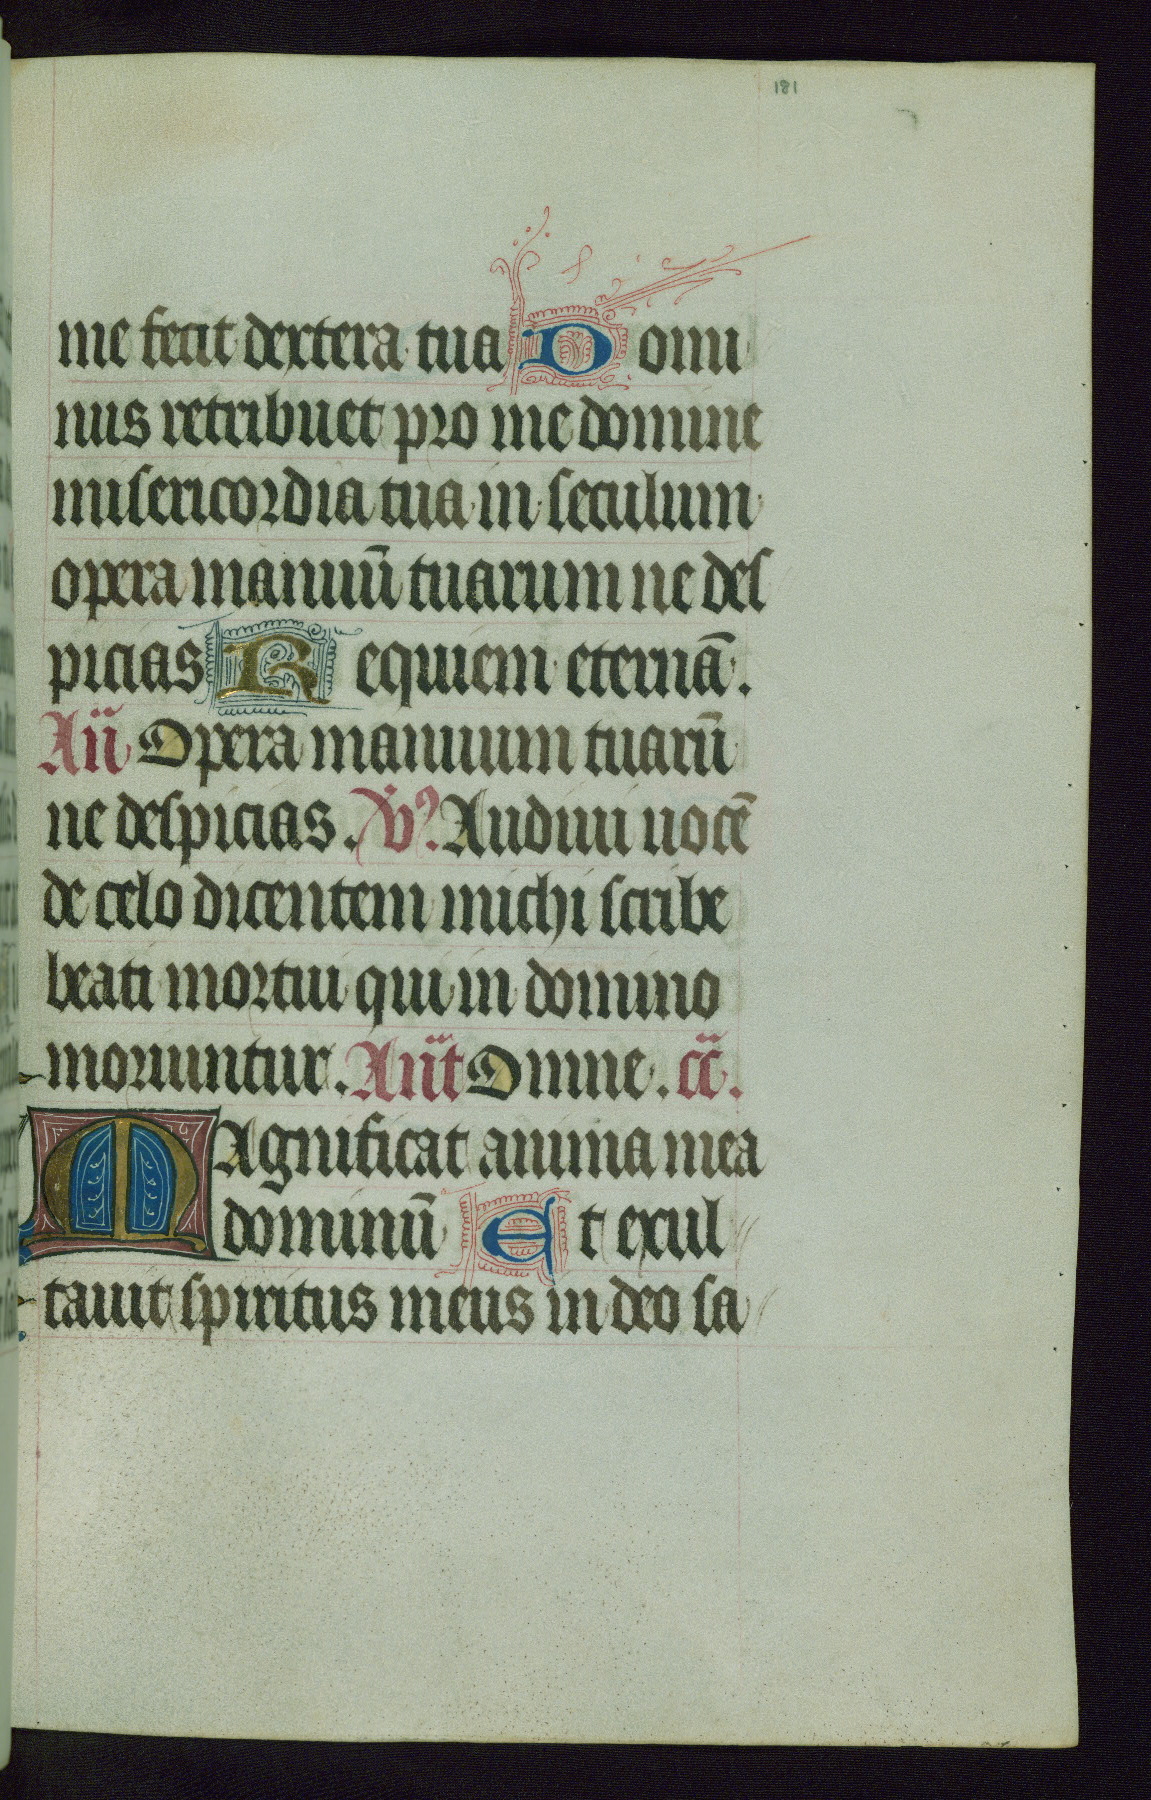 181
me fecit dextera tua Domi
nus retribuet pro me domine
misericordia tua in seculum
opera manuū tuarum ne des
picias Requiem eternā.
Añ Opera manuum tuarū
ne despicias. V̉. Audiui uocē
de celo dicentem michi scribe
beati mortui qui in domino
moriuntur. Ant̄ Omne. c̄c̄.
MAgnificat anima mea
dominū Et exul
tauit spiritus meus in deo sa